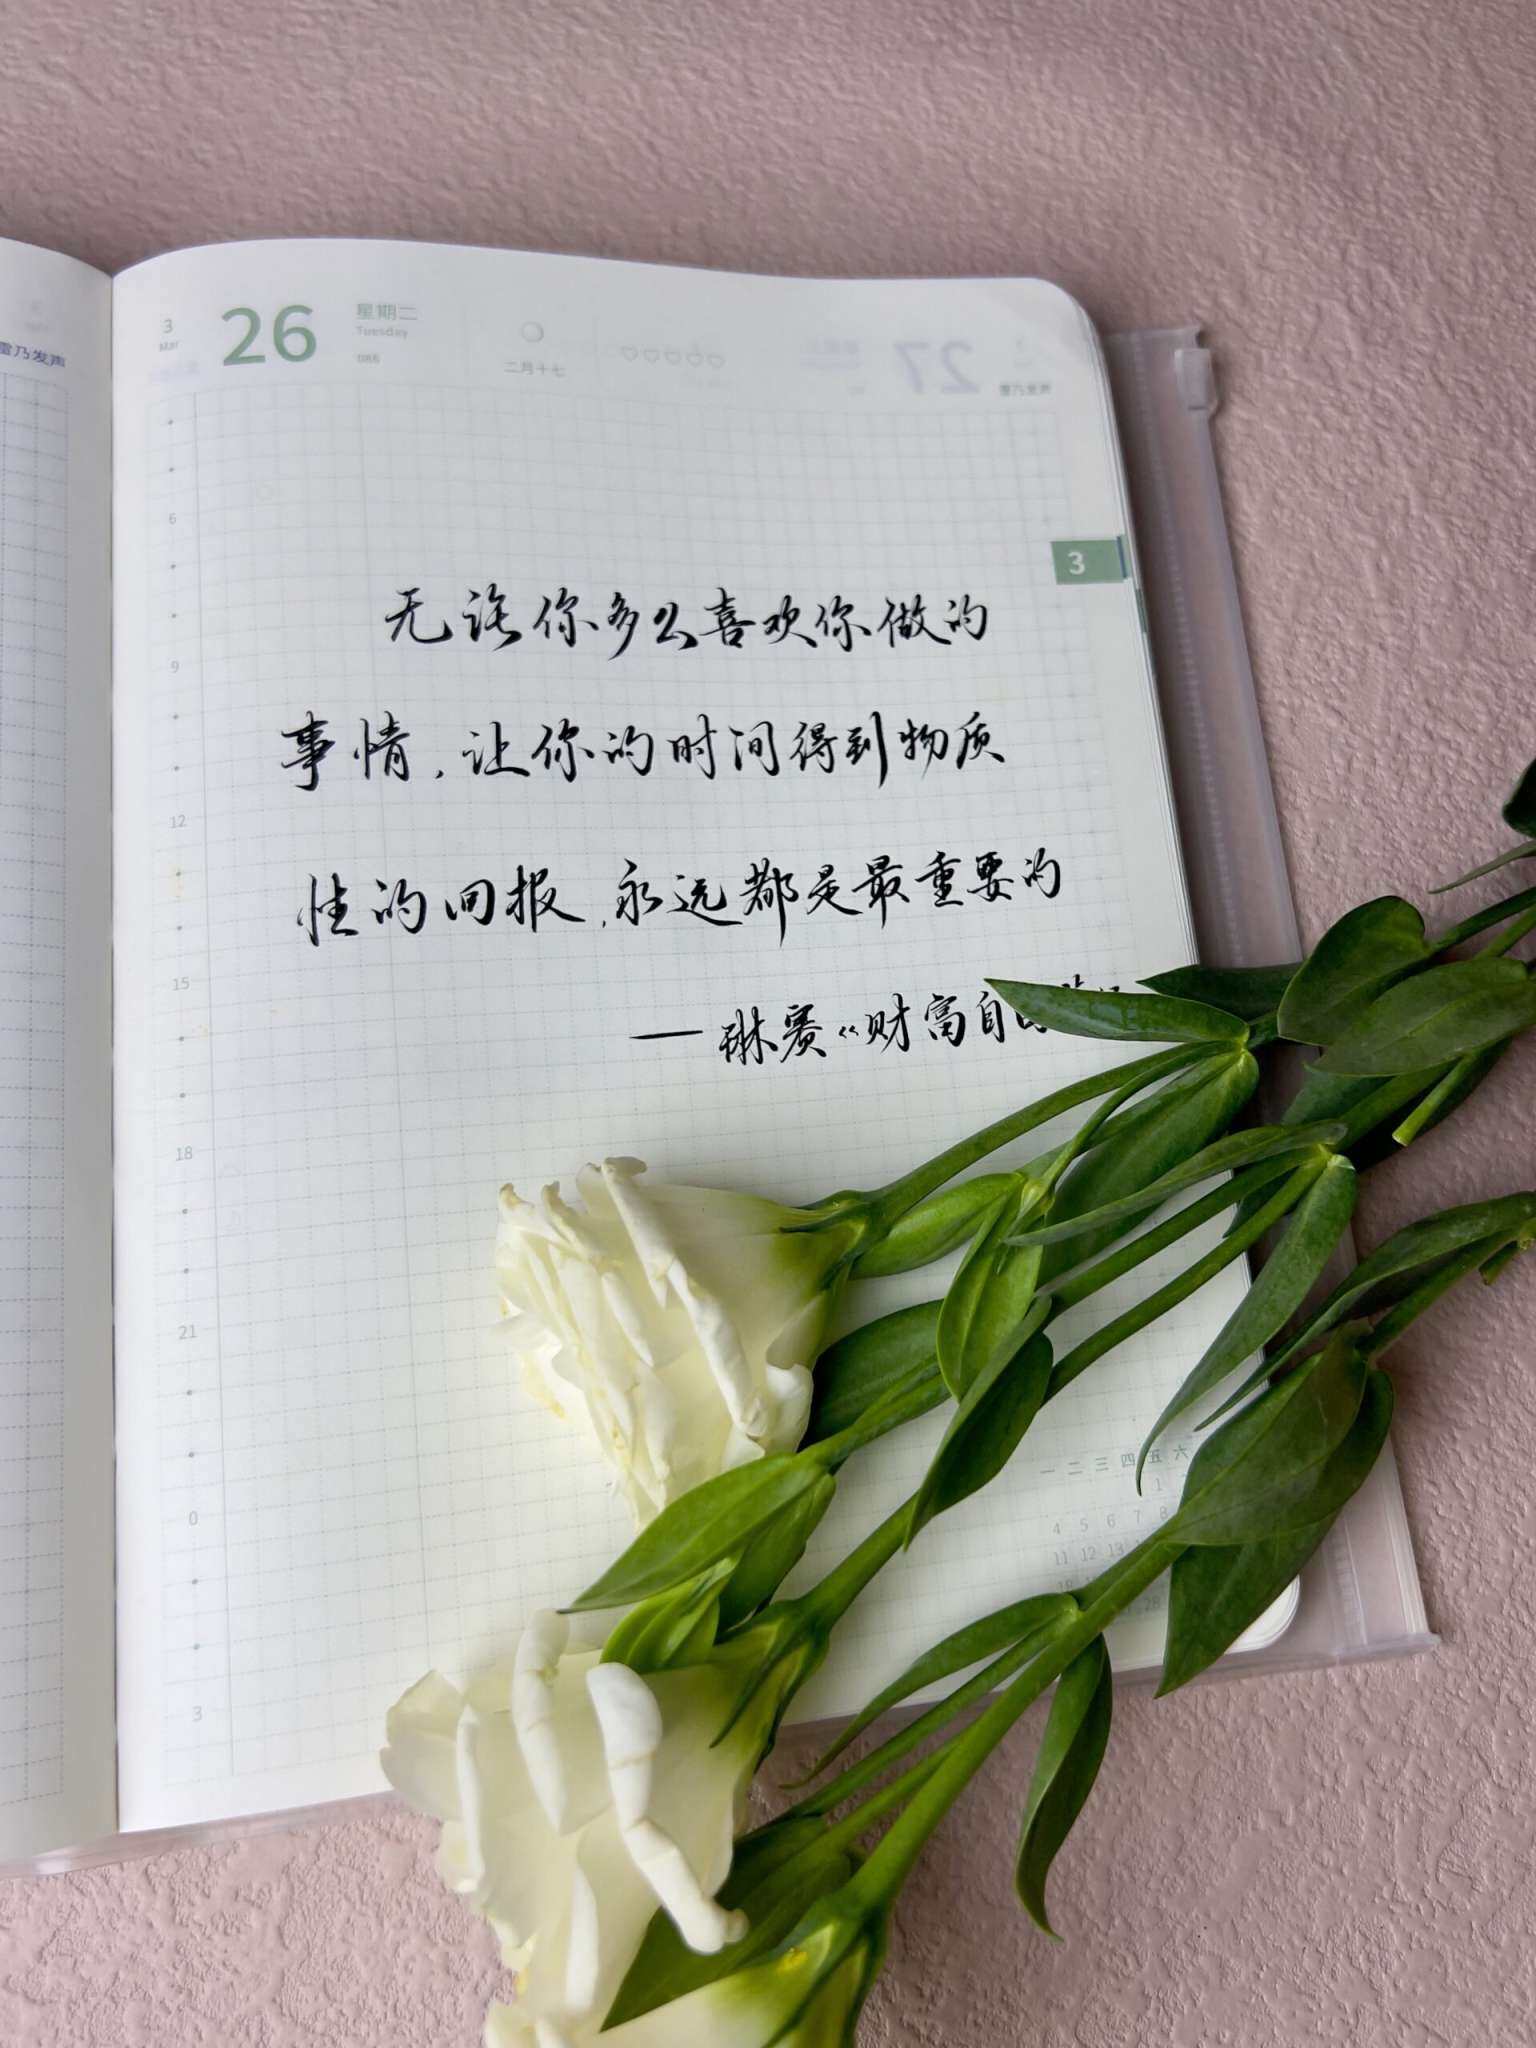 雷乃发声
3
Mar
26
星期二
Tuesday
086
二月十七
27
雷乃发声
3
无论你多么喜欢你做的
事情，让你的时间得到物质
性的回报，永远都是最重要的
——琳赛《财富自由
6
9
12
15
18
21
0
3
一 二 三 四 五 六
1
4 5 6 7 8
11 12 13
18
28